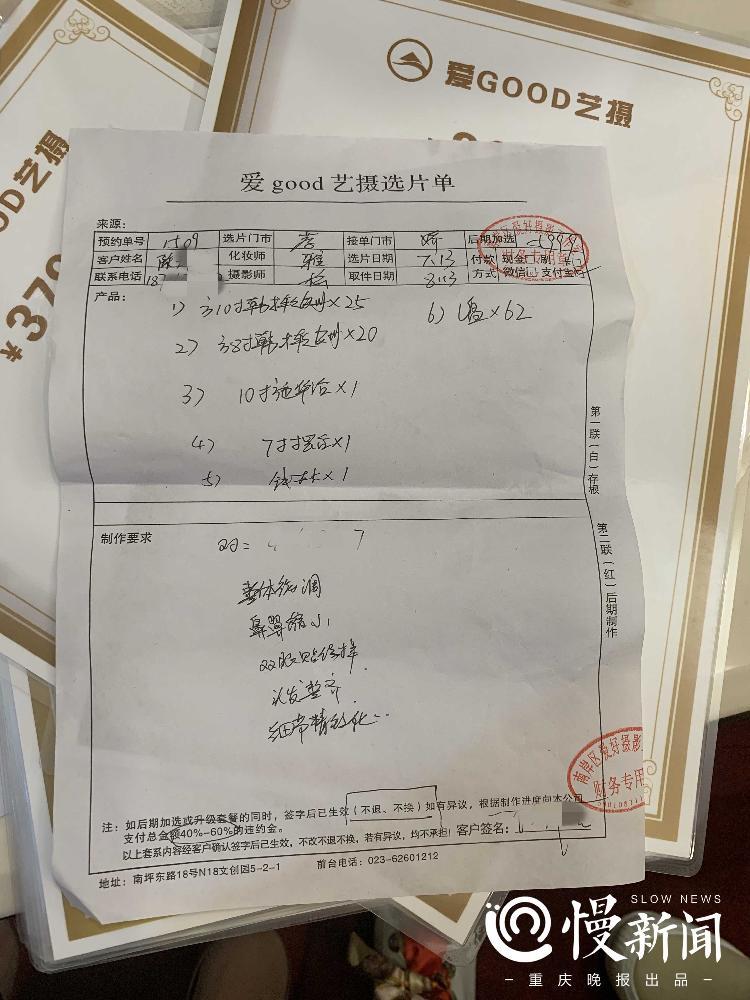 爱GOOD艺摄
GOOD艺摄
¥379
爱good艺摄选片单
来源:
预约单号 1509 选片门市 接单门市 后期加选
客户姓名 化妆师 雅 选片日期 7.13 付款 现金
联系电话 18 摄影师 取件日期 8.13 方式 微信 支付宝
产品:
×25
6) U盘×62
2) ×20
3) 10寸 ×1
4) 7寸摆台×1
5) ×1
第一联(白)存根
第二联(红)后期制作
制作要求
QQ:
整体微调
鼻翼缩小
双眼贴修掉
头发整齐
细节精致化
注:如后期加选或升级套餐的同时,签字后已生效(不退、不换)如有异议,根据制作进度向本公司
支付总金额40%-60%的违约金。
以上套系内容经客户确认签字后已生效,不改不退不换,若有异议,均不承担! 客户签名:
地址:南坪东路18号N18文创园5-2-1 前台电话:023-62601212
南岸区爱好摄影
财务专用
SLOW NEWS
慢新闻
-重庆晚报出品-